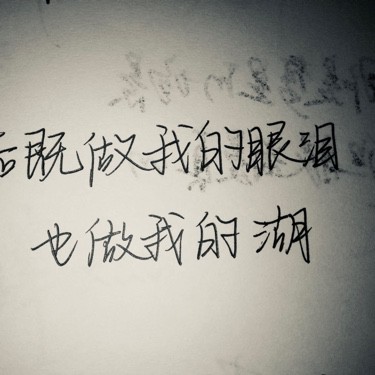 后既做我的眼泪
也做我的湖